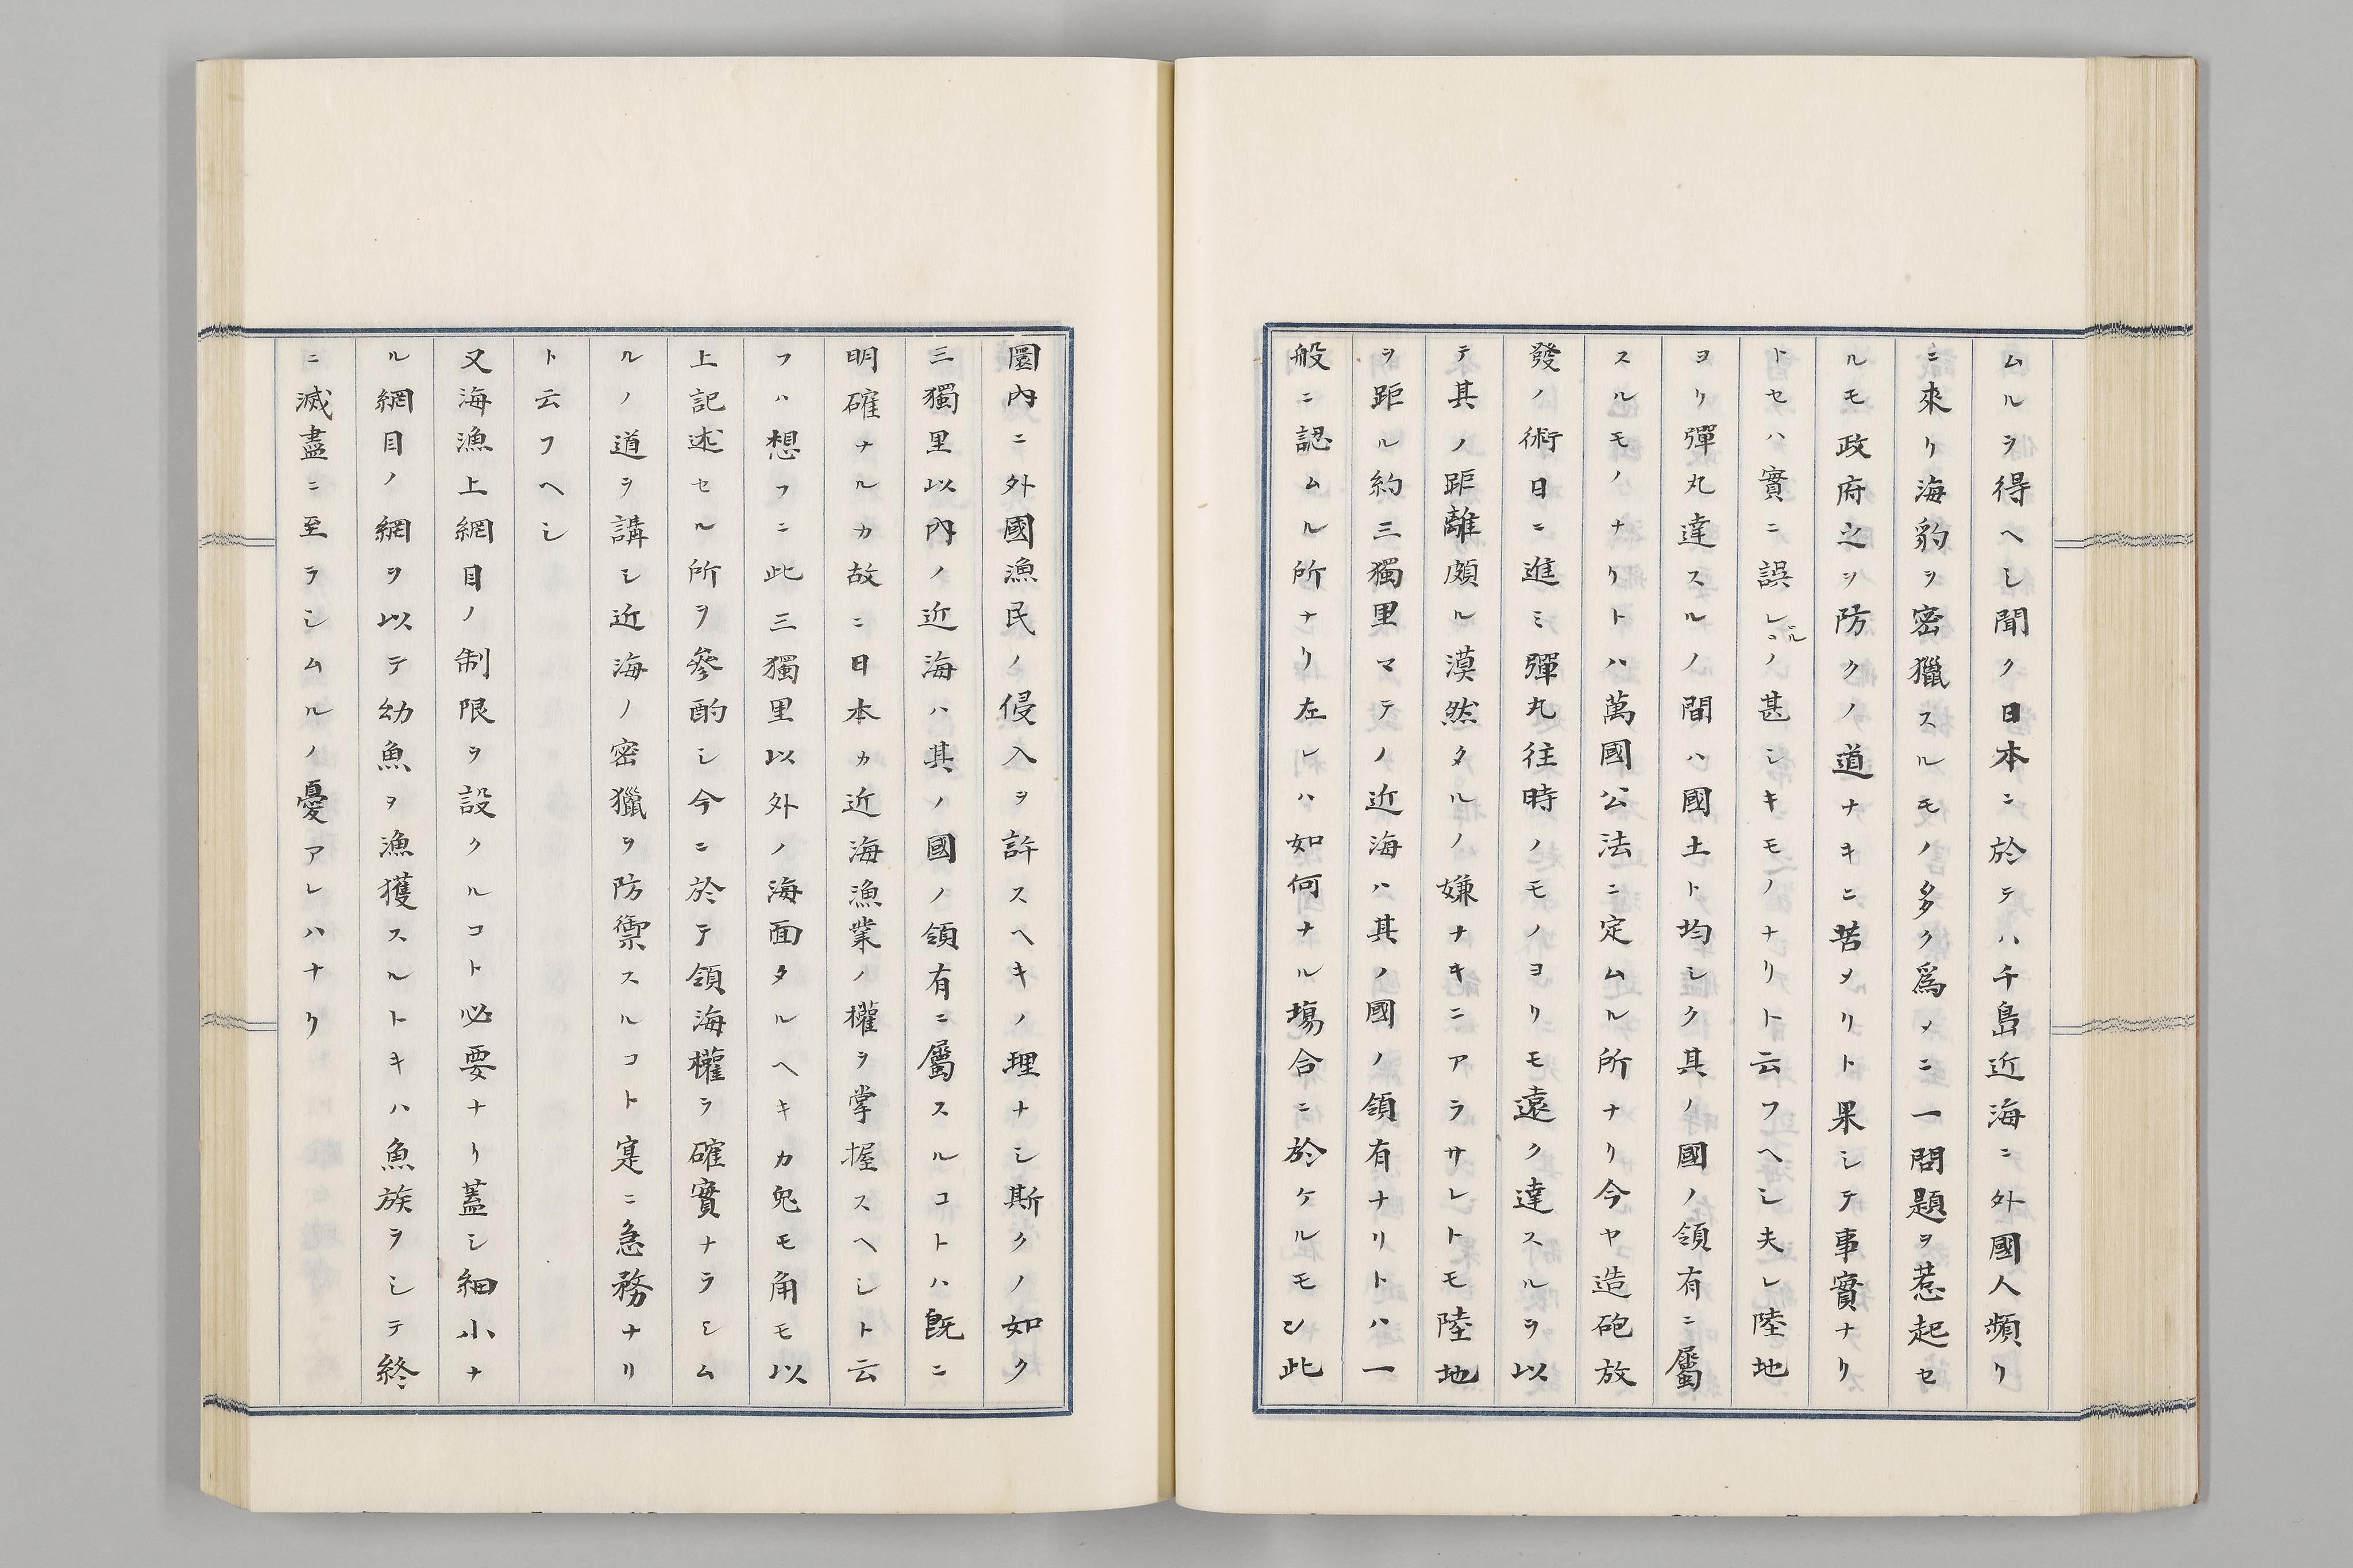 ムルヲ得ヘシ聞ク日本ニ於テハ千島近海ニ外國人頻リ
ニ來リ海豹ヲ密獵スルモノ多ク爲メニ一問題ヲ惹起セ
ルモ政府之ヲ防クノ道ナキニ苦メリト果シテ事實ナリ
トセハ實ニ誤レルノ甚シキモノナリト云フヘシ夫レ陸地
ヨリ彈丸達スルノ間ハ國土ト均シク其ノ國ノ領有ニ屬
スルモノナリトハ萬國公法ニ定ムル所ナリ今ヤ造砲放
發ノ術日ニ進ミ彈丸往時ノモノヨリモ遠ク達スルヲ以
テ其ノ距離頗ル漠然タルノ嫌ナキニアラサレトモ陸地
ヲ距ル約三獨里マテノ近海ハ其ノ國ノ領有ナリトハ一
般ニ認ムル所ナリ左レハ如何ナル塲合ニ於ケルモ此
圏內ニ外國漁民ノ侵入ヲ許スヘキノ理ナシ斯クノ如ク
三獨里以內ノ近海ハ其ノ國ノ領有ニ屬スルコトハ既ニ
明確ナルカ故ニ日本カ近海漁業ノ權ヲ掌握スヘシト云
フハ想フニ此三獨里以外ノ海面タルヘキカ兎モ角モ以
上記述セル所ヲ參酌シ今ニ於テ領海權ヲ確實ナラシム
ルノ道ヲ講シ近海ノ密獵ヲ防禦スルコト寔ニ急務ナリ
ト云フヘシ
又海漁上網目ノ制限ヲ設クルコト必要ナリ蓋シ細小ナ
ル網目ノ網ヲ以テ幼魚ヲ漁獲スルトキハ魚族ヲシテ終
ニ滅盡ニ至ラシムルノ憂アレハナリ